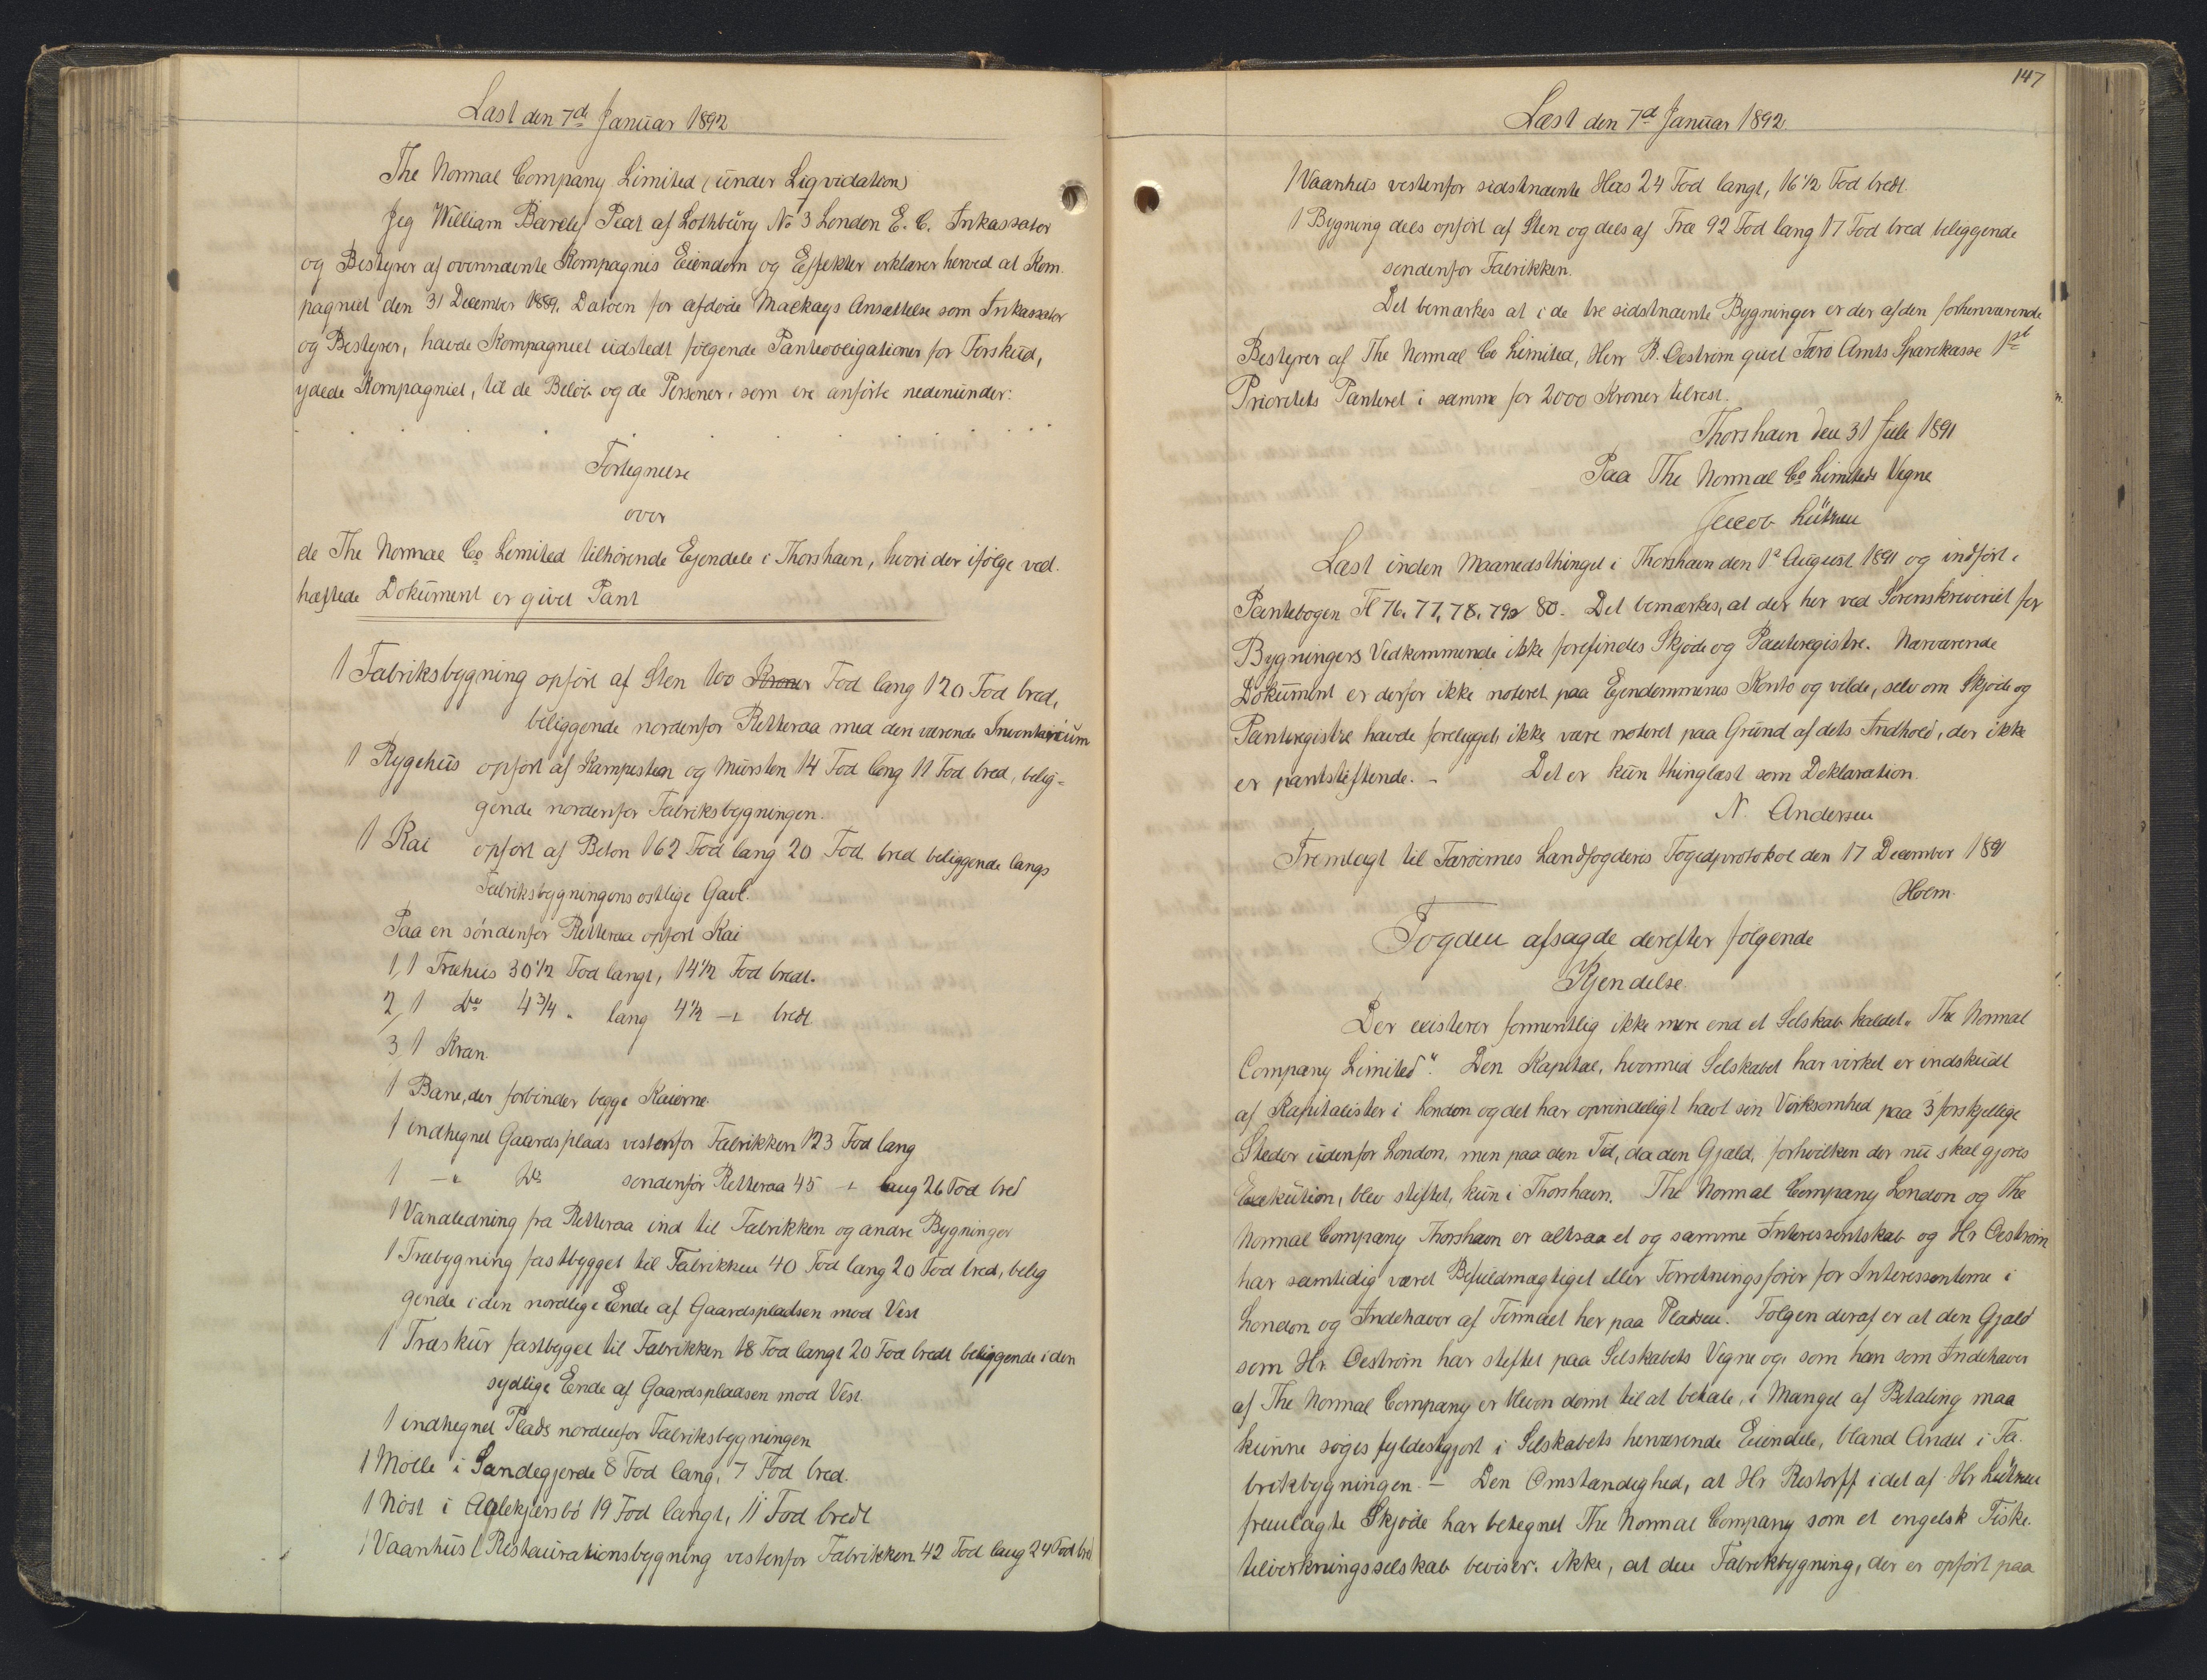 Læst den 7de Januar 1892
The Normal Company Limited (under Liqvidation)
Jeg William Barcley Peat af Lothbury No 3 London E. C. Inkassator
og Bestyrer af ovennævnte Kompagnis Eiendom og Effekter erklærer herved at Kom
pagniet den 31 December 1889, Datoen for afdøde Mackays Ansættelse som Inkassator
og Bestyrer, havde Kompagniet udstedt følgende Panteobligationer for Forskud,
ydede Kompagniet, til de Beløb og de Personer, som ere anførte nedenunder:
. . . . . . . . . .
Fortegnelse
over
de The Normal Co Limited tilhørende Ejendele i Thorshavn, hvori der ifølge ved
hæftede Dokument er givet Pant
1 Fabriksbygning opført af Sten 100 Kroner Fod lang 120 Fod bred,
beliggende nordenfor Retteraa med den værende Inventarium
1 Rygehus opført af Kampesten og Mursten 14 Fod lang 11 Fod bred, belig-
gende nordenfor Fabriksbygningen.
1 Kai opført af Beton 162 Fod lang 20 Fod bred beliggende langs
Fabriksbygningens østlige Gavl.
Paa en søndenfor Retteraa opført Kai
1, 1 Træhus 30 1/2 Fod langt, 14 1/2 Fod bredt.
2, 1 Do 4 3/4 " lang 4 1/2 -"- bredt
3, 1 Kran.
1 Bane, der forbinder begge Kaierne.
1 indhegnet Gaardsplads vestenfor Fabrikken 123 Fod lang
1 -"- Do søndenfor Retteraa 45 -"- lang 26 Fod bred
1 Vandledning fra Retteraa ind til Fabrikken og andre Bygninger
1 Træbygning fastbygget til Fabrikken 40 Fod lang 20 Fod bred, belig
gende i den nordlige Ende af Gaardspladsen mod Vest
1 Træskur fastbygget til Fabrikken 18 Fod langt 20 Fod bredt beliggende i den
sydlige Ende af Gaardspladsen mod Vest.
1 indhegnet Plads nordenfor Fabriksbygningen
1 Mølle i Sandegjerde 8 Fod lang, 7 Fod bred.
1 Nøst i Aalekjersbø 19 Fod langt, 11 Fod bredt
1 Vaanhus (Restaurationsbygning vestenfor Fabrikken 42 Fod lang 24 Fod bred
147
Læst den 7de Januar 1892.
1 Vaanhus vestenfor sidstnævnte Hus 24 Fod langt, 16 1/2 Fod bredt.
1 Bygning dels opført af Sten og dels af Træ 92 Fod lang 17 Fod bred beliggende
søndenfor Fabrikken.
Det bemærkes at i de tre sidstnævnte Bygninger er der af den forhenværende
Bestyrer af The Normal Co Limited, Herr R. Oestrøm givet Færø Amts Sparekasse 1ste
Prioritets Panteret i samme for 2000 Kroner tilrest.
Thorshavn den 31 Juli 1891
Paa The Normal Co Limiteds Vegne
Jacob Lützen
Læst inden Maanedsthinget i Thorshavn den 1de August 1891 og indført i
Pantebogen Fl 76, 77, 78, 79 og 80. Det bemærkes, at der her ved Sorenskriveriet for
Bygningers Vedkommende ikke forefindes Skjøde og Panteregistre. Nærværende
Dokument er derfor ikke noteret paa Ejendommenes Konto og vilde, selv om Skjøde og
Panteregistre havde foreligget, ikke være noteret paa Grund af dets Indhold, der ikke
er pantstiftende. – Det er kun thinglæst som Deklaration.
N. Andersen
Fremlagt til Færøernes Landfogderis Fogedprotokol den 17 December 1891
Holm.
Fogden afsagde derefter følgende
Kjendelse
Der existerer formentlig ikke mere end et Selskab kaldet „The Normal
Company Limited“. Den Kapital, hvormed Selskabet har virket er indskudt
af Kapitalister i London og det har oprindeligt havt sin Virksomhed paa 3 forskjellige
Steder udenfor London, men paa den Tid, da den Gjæld, for hvilken der nu skal gjøres
Exekution, blev stiftet, kun i Thorshavn. The Normal Company London og The
Normal Company Thorshavn er altsaa et og samme Interessentskab og Hr Oestrøm
har samtidig været Befuldmægtiget eller Forretningsfører for Interessenterne i
London og Indehaver af Firmaet her paa Pladsen. Følgen deraf er at den Gjæld
som Hr. Oestrøm har stiftet paa Selskabets Vegne og, som han som Indehaver
af The Normal Company er bleven dømt til at betale, i Mangel af Betaling maa
kunne søges fyldestgjort i Selskabets herværende Eiendele, bland Andet i Fa
brikbygningen. – Den Omstændighed, at Hr Restorff i det af Hr Lützen
fremlagte Skjøde har betegnet The Normal Company som et engelsk Fiske
tilvirkningsselskab beviser ikke, at den Fabrikbygning, der er opført paa